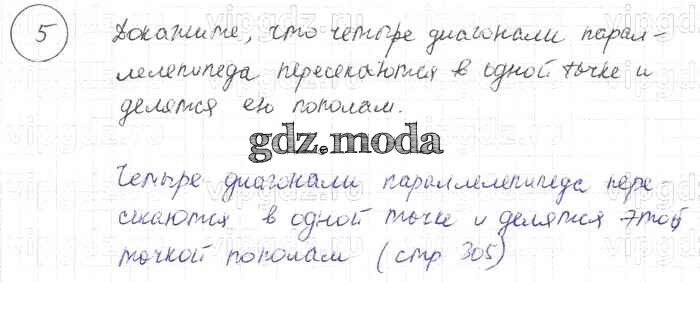 5 Докажите, что четыре диагонали парал-
лелепипеда пересекаются в одной точке и
делятся ею пополам.
gdz.moda
Четыре диагонали параллелепипеда пере-
секаются в одной точке и делятся этой
точкой пополам (стр 305)